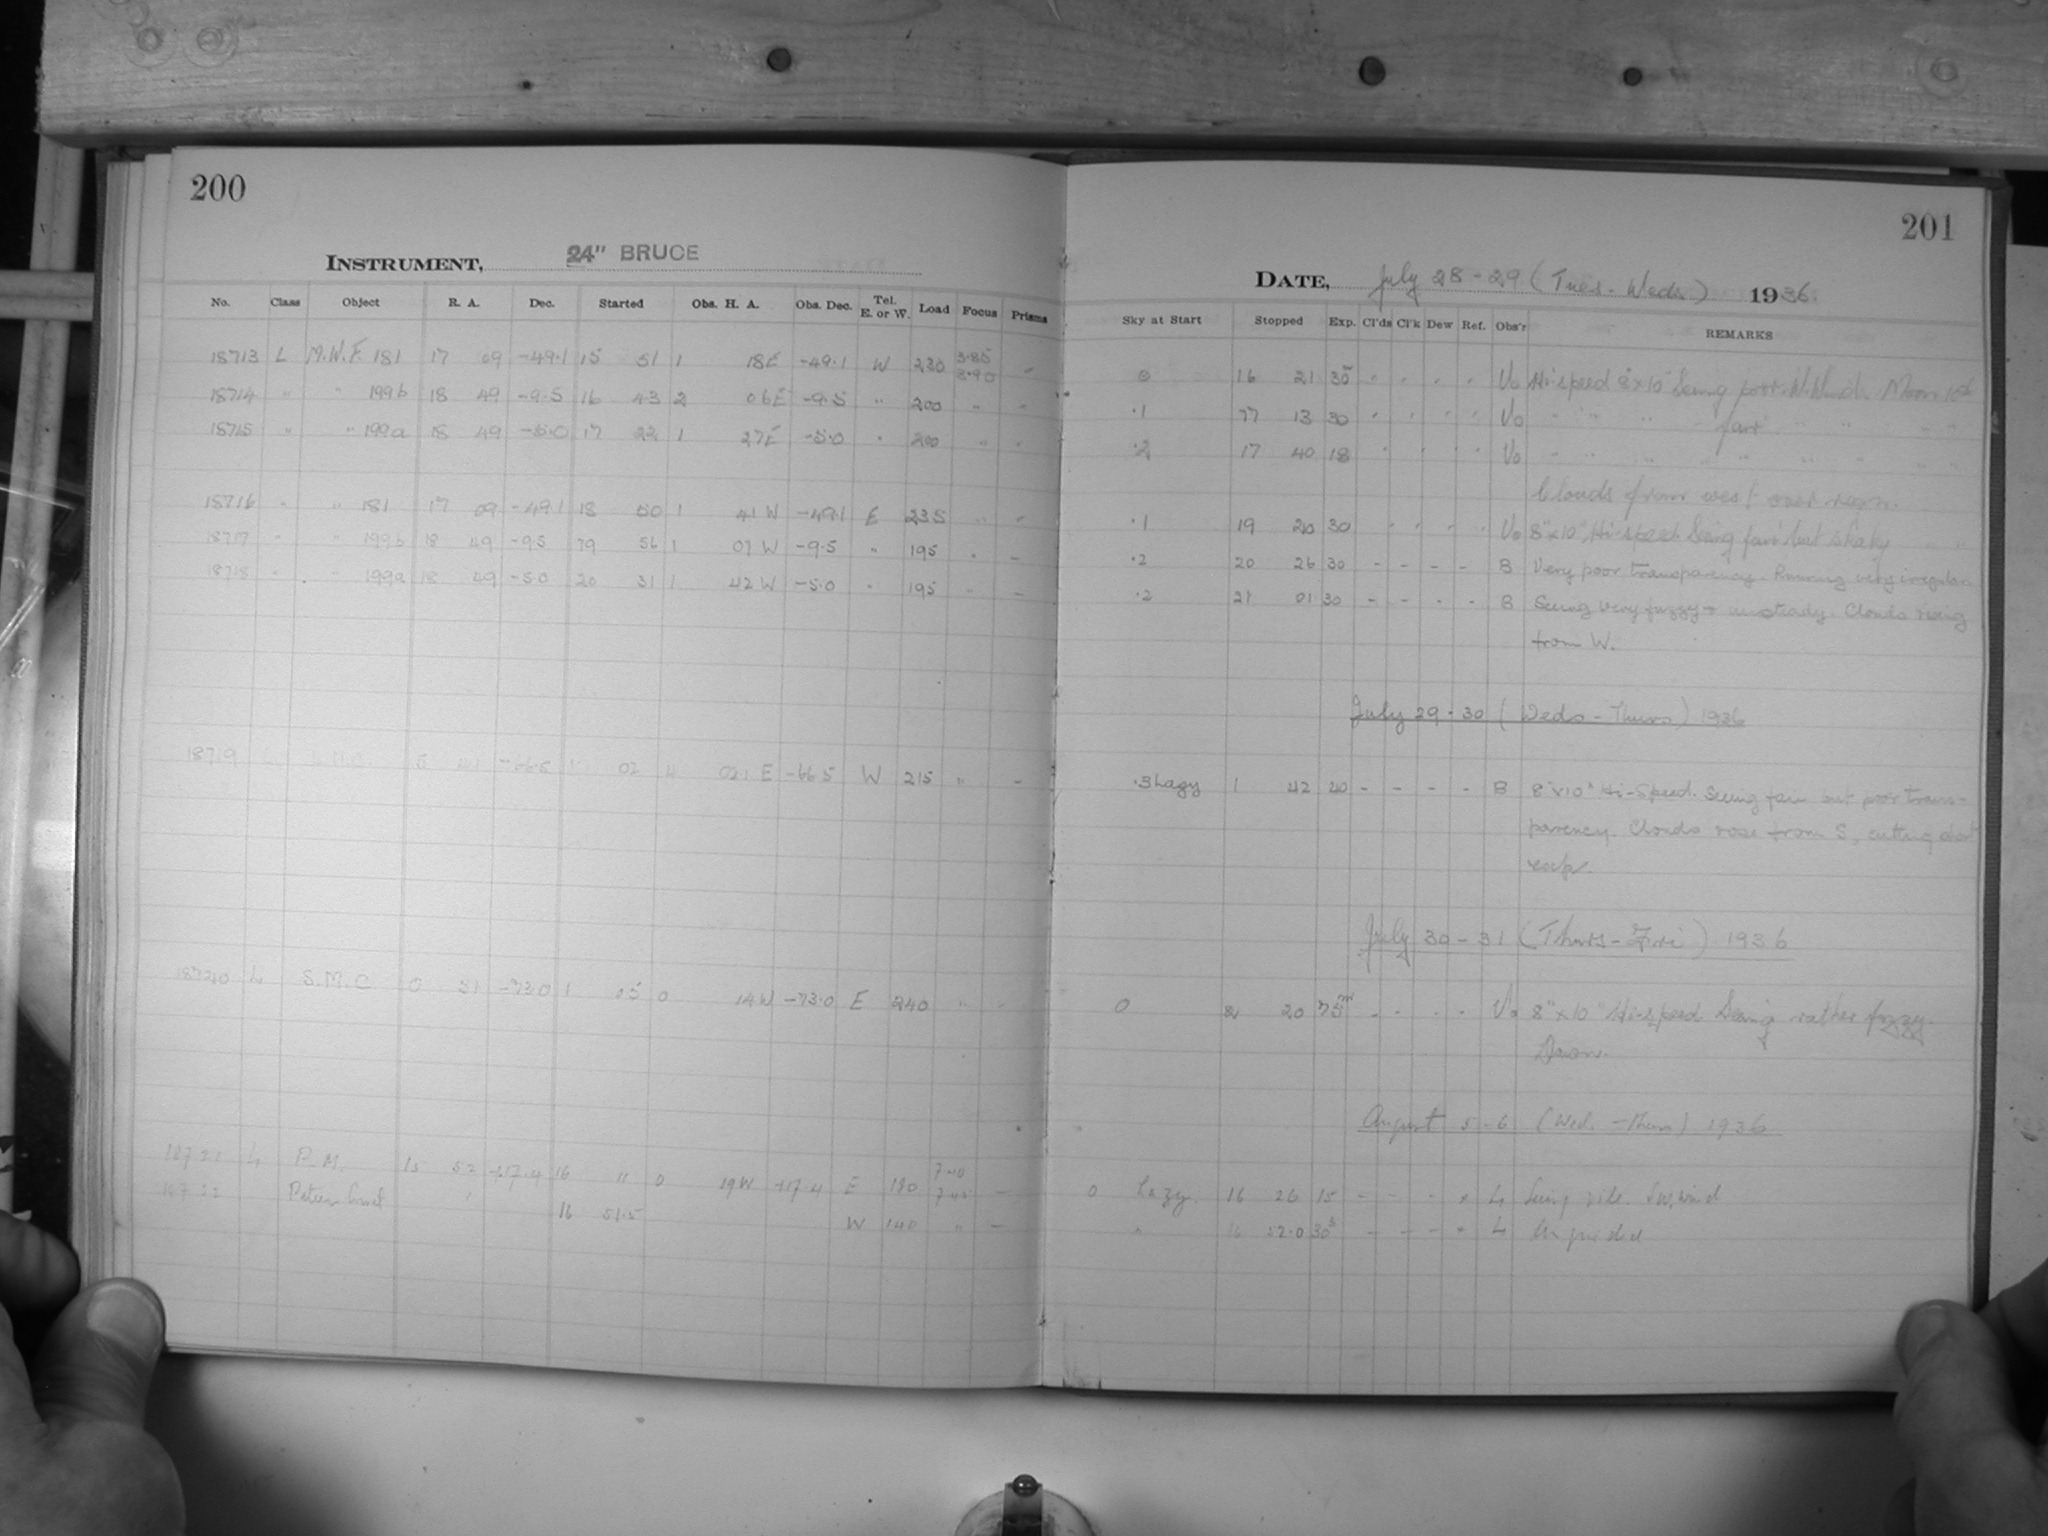 200
INSTRUMENT, 24" BRUCE
No. Class Object R. A. Dec. Started Obs. H. A. Obs. Dec. Tel. E. or W. Load Focus Prisms
18713 L M.W.F. 181 17 09 -49.1 15 51 1 18E -49.1 W 230 3.85 3.90 "
18714 " " 199b 18 49 -9.5 16 43 2 06E -9.5 " 200 " "
18715 " " 199a 18 49 -5.0 17 22 1 27E -5.0 " 200 " "
18716 " " 181 17 09 -49.1 18 50 1 41 W -49.1 E 235 " "
18717 " " 199b 18 49 -9.5 19 56 1 07 W -9.5 " 195 " -
18718 " " 199a 18 49 -5.0 20 31 1 42 W -5.0 " 195 " -
18719 -66.5 02 E -66.5 W 215 " -
18720 L S.M.C 0 51 -73.0 1 05 0 14 W -73.0 E 240 " -
18721 L P.M. 15 52 +17.4 16 11 0 19W +17.4 E 180 7.40 -
16 51.5 W 140 " -
201
DATE, July 28-29 (Tues. Weds.) 1936
Sky at Start Stopped Exp. Cl'ds Cl'k Dew Ref. Obs'r REMARKS
0 16 21 30 " " " " Vo Hi-speed 8"x10" Seeing poor. Wind. Moon
.1 17 13 30 " " " " Vo " " " fair " " " "
.2 17 40 18 " " " " Vo " " " " " " " "
Clouds from west over region.
.1 19 20 30 " " " " Vo 8"x10" Hi-speed Seeing fair but shaky
.2 20 26 30 - - - - B Very poor transparency. Running very irregular
.2 21 01 30 - - - - B Seeing very fuzzy & unsteady. Clouds rising
from W.
July 29-30 (Weds - Thurs) 1936
.3 hazy 1 42 40 - - - - B 8"x10" Hi-Speed. Seeing fair but poor trans-
parency. Clouds rose from S, cutting short
exp.
July 30-31 (Thurs-Fri) 1936
0 2 20 75m - - - - Vo 8"x10" Hi-speed Seeing rather fuzzy.
August 5-6 (Wed. - Thurs) 1936
0 hazy. 16 26 15 - - - x L Seeing S.W. wind
" 16 52.0 30s - - - x L Unguided